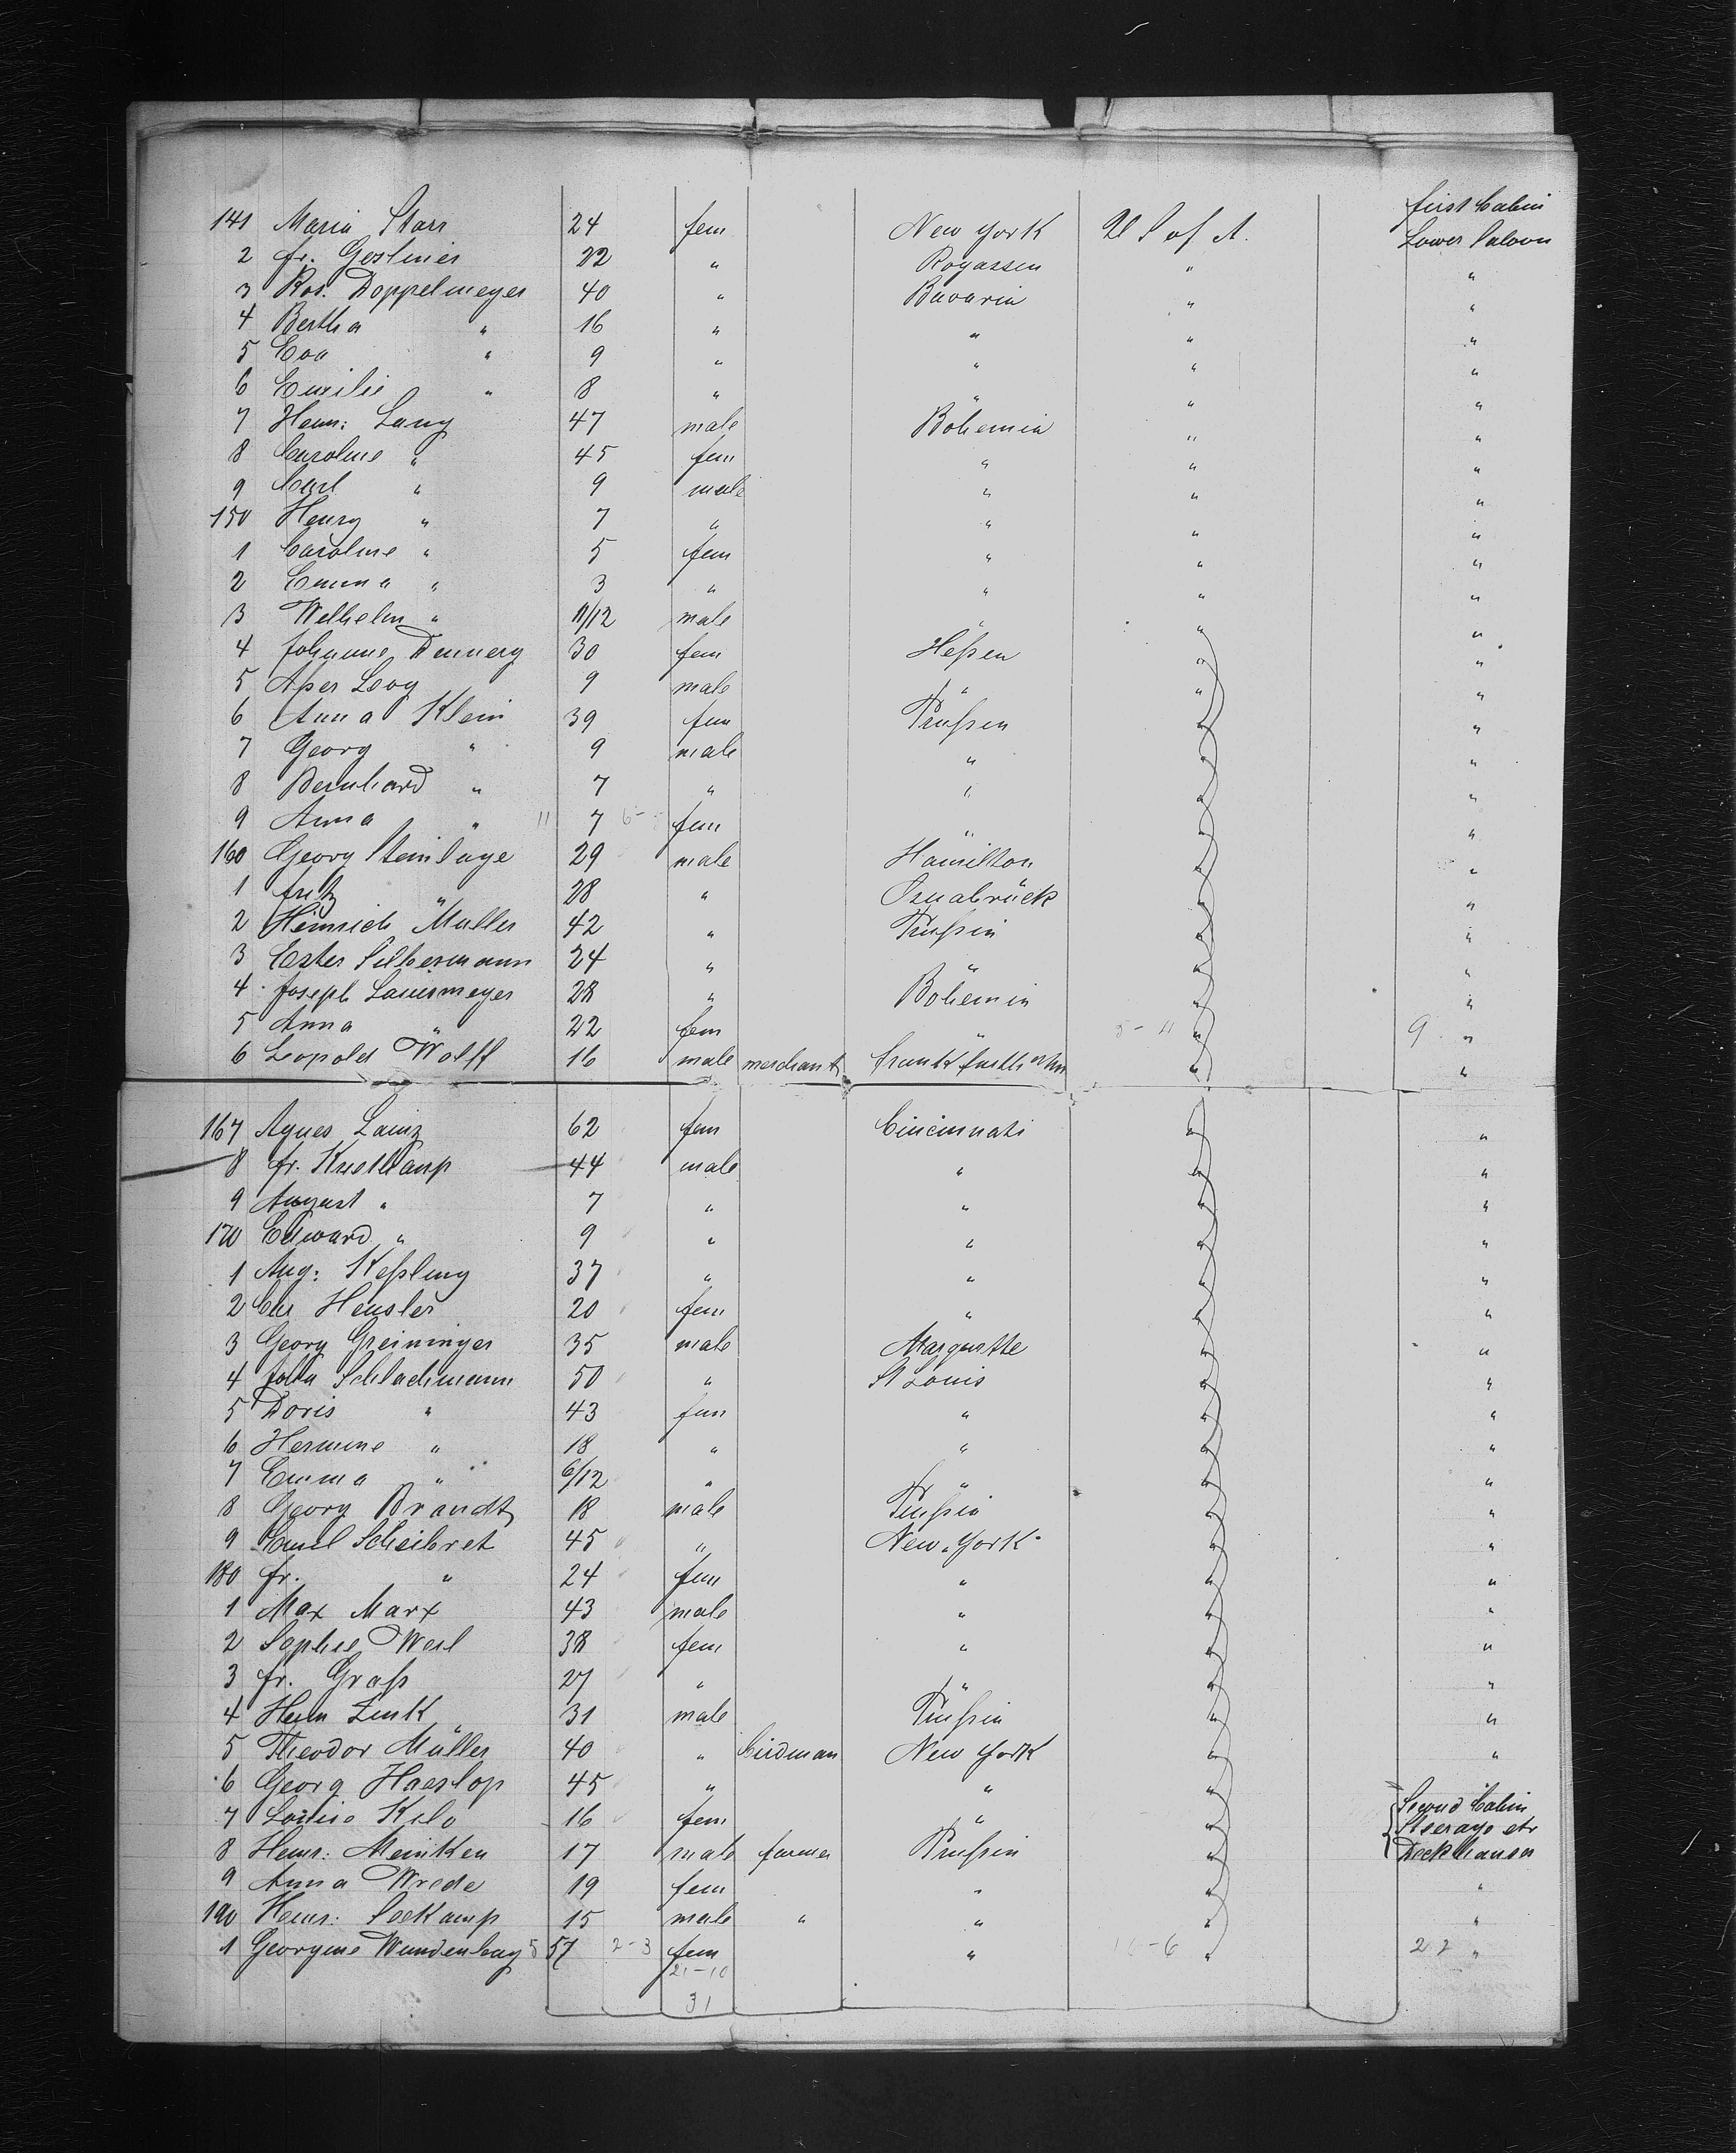 first Cabin
141 Maria Starr 24 fem New York U S of A. Lower Saloon
2 fr. Gostinier 22 " Rogassen " "
3 Ros. Doppelmeyer 40 " Bavaria " "
4 Bertha " 16 " " " "
5 Eva " 9 " " " "
6 Emilie " 8 " " " "
7 Heinr: Lang 47 male Bohemia " "
8 Caroline " 45 fem " " "
9 Carl " 9 male " " "
150 Henry " 7 " " " "
1 Caroline " 5 fem " " "
2 Emma " 3 " " " "
3 Wilhelm " 11/12 male " " "
4 Johanne Dennery 30 fem Heßen " "
5 Aser Levy 9 male " " "
6 Anna Klein 39 fem Prußen " "
7 Georg " 9 male " " "
8 Bernhard " 7 " " " "
9 Anna " 11 7 6- fem " " "
160 Georg Steinlage 29 male Hamilton " "
1 fritz " 28 " Osnabrück " "
2 Heinrich Muller 42 " Prußia " "
3 Ester Silbermann 24 " " " "
4 Joseph Lauermeyer 28 " Bohemia " "
5 Anna " 22 fem " 5-11 " 9 "
6 Leopold Wolff 16 male merchant " "
167 Agnes Lainz 62 fem Cincinnati " "
8 fr. Kustkamp 44 male " " "
9 August " 7 " " " "
170 Edward " 9 " " " "
1 Aug: Keßling 37 " " " "
2 Chr Hensler 20 fem " " "
3 Georg Greininger 35 male Marquette " "
4 John Schlachmann 50 " St Louis " "
5 Doris " 43 fem " " "
6 Hermine " 18 " " " "
7 Emma " 6/12 " " " "
8 Georg Brandt 18 male Prußia " "
9 Scheibret 45 " New York " "
180 fr. " 24 fem " " "
1 Max Marx 43 male " " "
2 Sophie Weil 38 fem " " "
3 fr. Graß 27 " " " "
4 Heinr Zink 31 male Prußia " "
5 Theodor Müller 40 " New York " "
6 Georg Haeslop 45 " " "
7 Louise Kilo 16 fem " " Second Cabin
Steerage etr
8 Heinr: Meinken 17 male farmer Prußia " Deckhauser
9 Anna Wrede 19 fem " " "
190 Heinr: Seekamp 15 male " " " "
1 Georgine Wundenberg 5 57 2-3 fem " 16-6 " 22 "
21-10
31